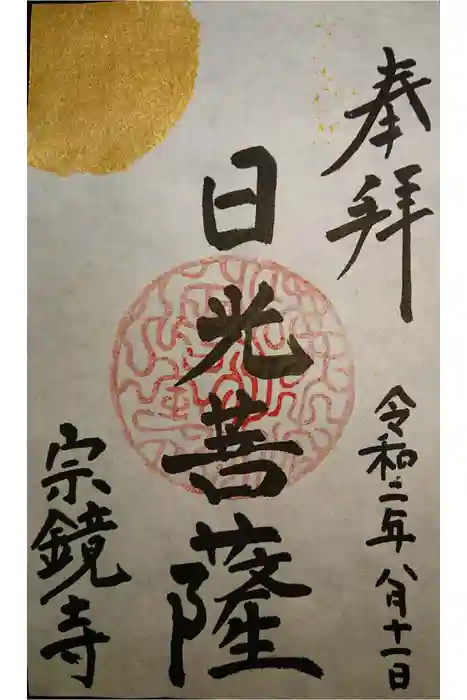 奉拝
令和二年八月十一日
日光菩薩
宗鏡寺